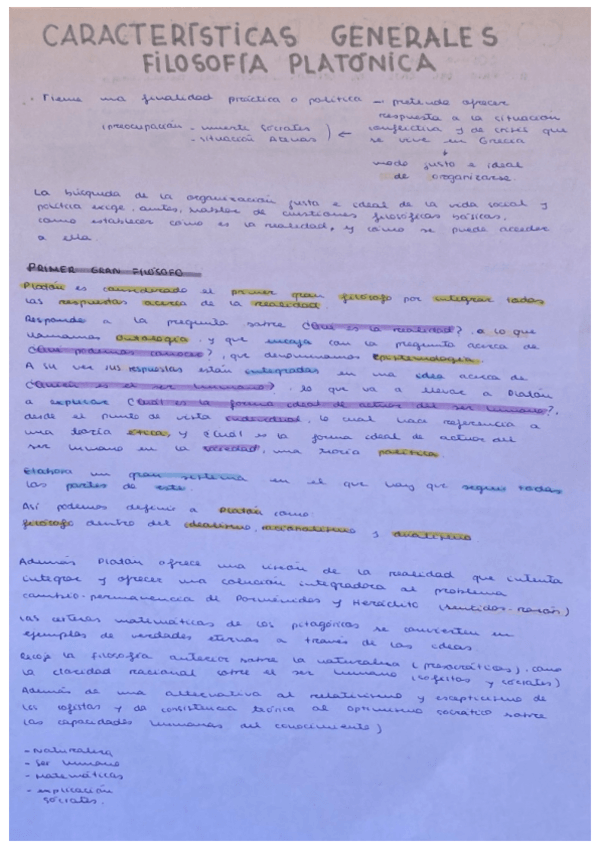 CARACTERÍSTICAS GENERALES
FILOSOFÍA PLATÓNICA
. Tiene una finalidad práctica o política → pretende ofrecer
respuesta a la situación
(preocupación - muerte Sócrates ) ← conflictiva y de crisis que
- situación Atenas se vive en Grecia
↓
modo justo e ideal
de organizarse.
La búsqueda de la organización justa e ideal de la vida social y
política exige, antes, hablar de cuestiones filosóficas básicas,
como establecer cómo es la realidad, y cómo se puede acceder
a ella
PRIMER GRAN FILÓSOFO
Platón es considerado el primer gran filósofo por integrar todas
las respuestas acerca de la realidad.
Responde a la pregunta sobre ¿Qué es la realidad?, a lo que
llamamos ontología, y que encaja con la pregunta acerca de
¿Qué podemos conocer?, que denominamos epistemología.
A su vez sus respuestas están integradas en una idea acerca de
¿Quién es el ser humano?, lo que va a llevar a Platón
a explicar ¿Cuál es la forma ideal de actuar del ser humano?,
desde el punto de vista individual, lo cual hace referencia a
una teoría ética, y ¿Cuál es la forma ideal de actuar del
ser humano en la sociedad, una teoría política.
Elabora un gran sistema en el que hay que seguir todas
las partes de este.
Así podemos definir a Platón como:
filósofo dentro del idealismo, racionalismo y dualismo
Además Platón ofrece una visión de la realidad que intenta
integrar y ofrecer una solución integradora al problema
cambio-permanencia de Parménides y Heráclito (sentidos-razón)
Las certezas matemáticas de los pitagóricos se convierten en
ejemplos de verdades eternas a través de las ideas.
Recoje la filosofía anterior sobre la naturaleza (presocráticos), como
la claridad racional sobre el ser humano (sofistas y Sócrates)
Además de una alternativa al relativismo y escepticismo de
los sofistas y da consistencia teórica al optimismo socrático sobre
las capacidades humanas del conocimiento)
- Naturaleza
- Ser humano
- Matemáticas
- explicación
Sócrates.